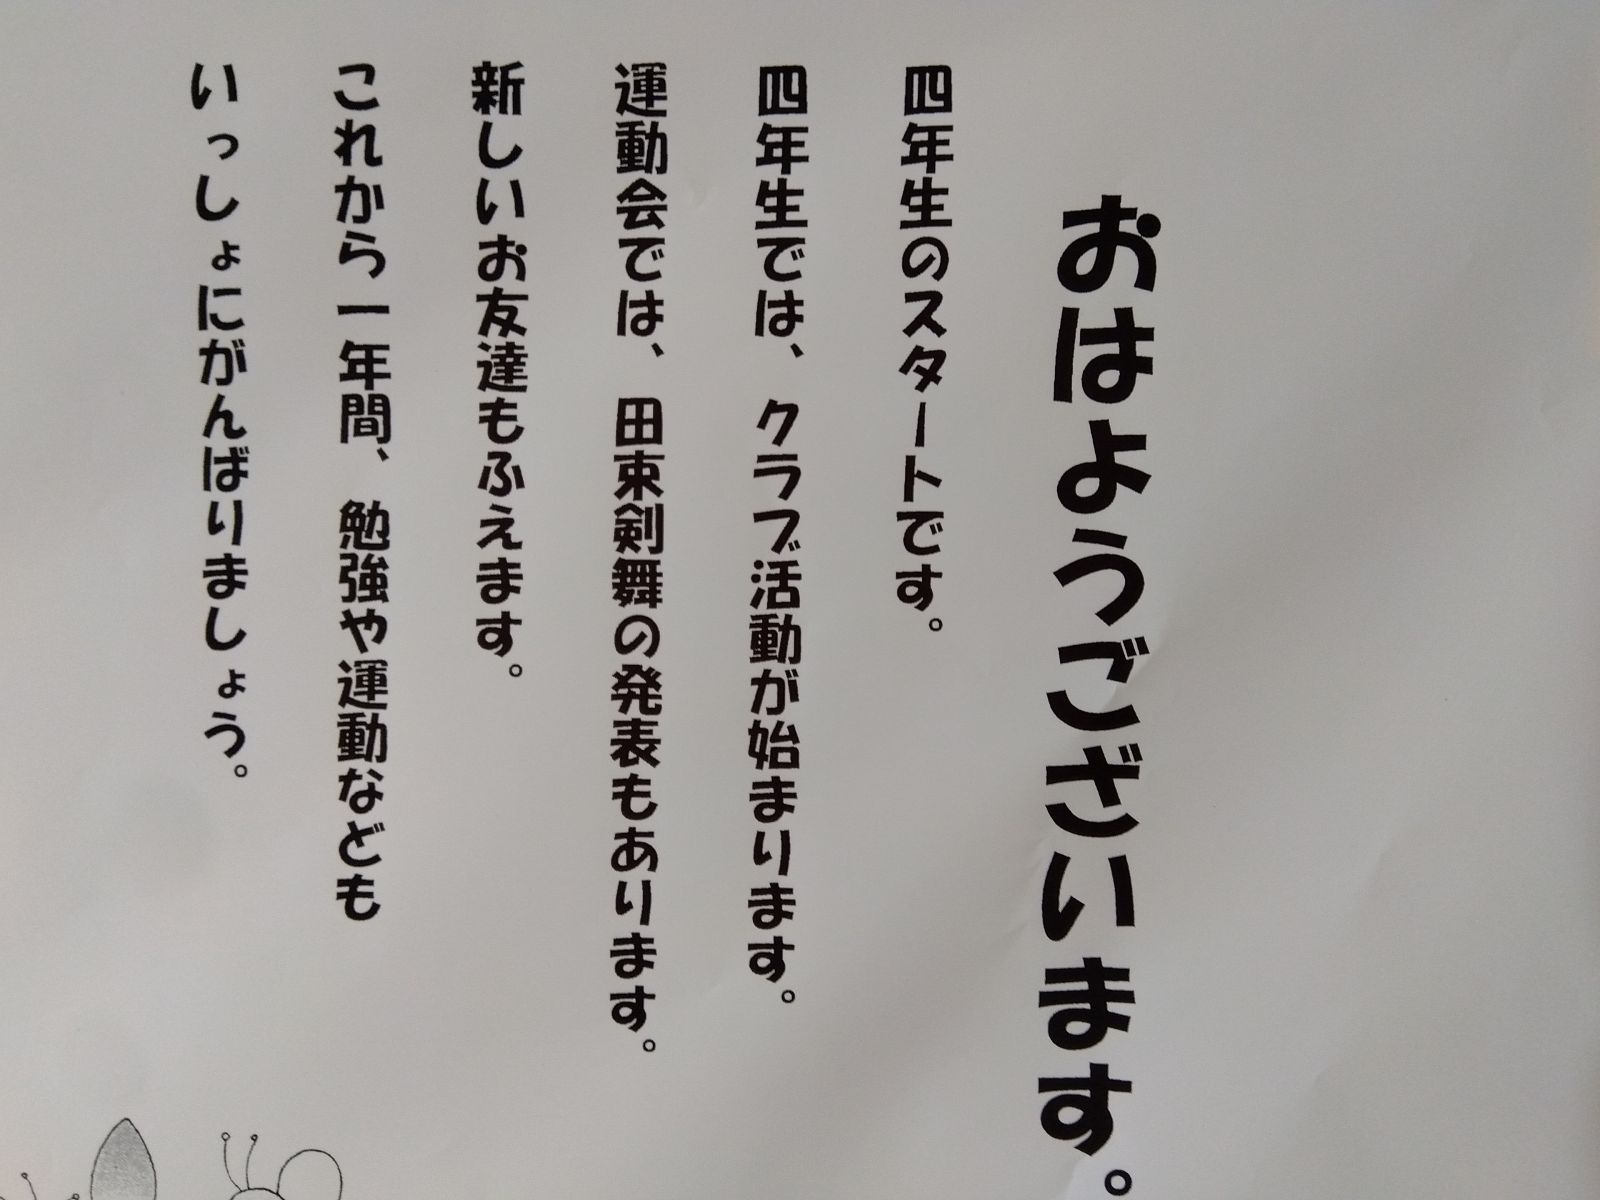 おはようございます。
四年生のスタートです。
四年生では、クラブ活動が始まります。
運動会では、田束剣舞の発表もあります。
新しいお友達もふえます。
これから一年間、勉強や運動なども
いっしょにがんばりましょう。